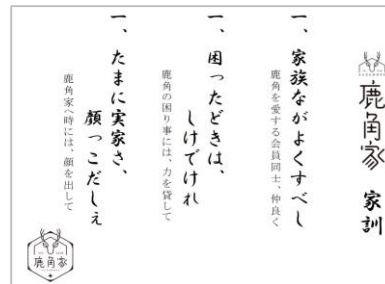 鹿角家 家訓
一、家族ながよくすべし
鹿角を愛する会員同士、仲良く
一、困ったどきは、
しけでけれ
鹿角の困り事には、力を貸して
一、たまに実家さ、
顔っこだしぇ
鹿角家へ時には、顔を出して
鹿角家